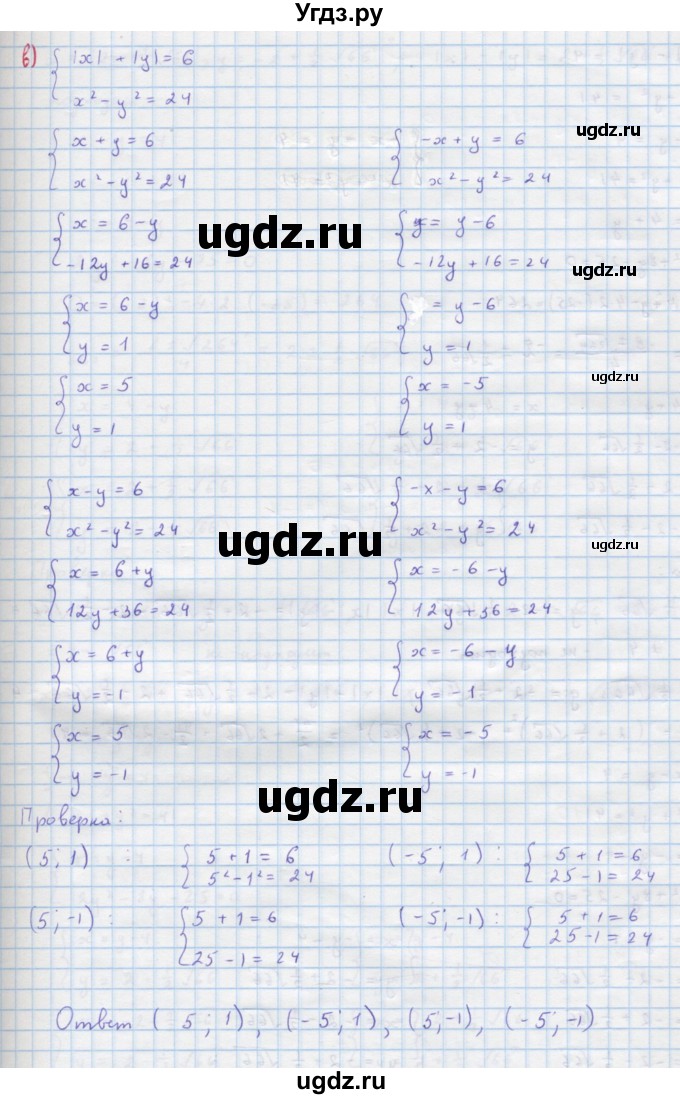 Угдз.ру
в) { |x| + |y| = 6
x² - y² = 24
{ x + y = 6
x² - y² = 24
{ -x + y = 6
x² - y² = 24
ugdz.ru
{ x = 6 - y
-12y + 16 = 24
ugdz.ru
{ = y - 6
-12y + 16 = 24
ugdz.ru
{ x = 6 - y
y = 1
{ = y - 6
y = 1
{ x = 5
y = 1
{ x = -5
y = 1
ugdz.ru
{ x - y = 6
x² - y² = 24
{ -x - y = 6
x² - y² = 24
ugdz.ru
ugdz.ru
{ x = 6 + y
12y + 36 = 24
{ x = -6 - y
12y + 36 = 24
{ x = 6 + y
y = -1
{ x = -6 - y
y = -1
{ x = 5
y = -1
{ x = -5
y = -1
ugdz.ru
Проверка:
(5; 1) : { 5 + 1 = 6
5² - 1² = 24
(-5; 1) : { 5 + 1 = 6
25 - 1 = 24
(5; -1) : { 5 + 1 = 6
25 - 1 = 24
(-5; -1) : { 5 + 1 = 6
25 - 1 = 24
Ответ (5; 1), (-5; 1), (5; -1), (-5; -1)
ugdz.ru